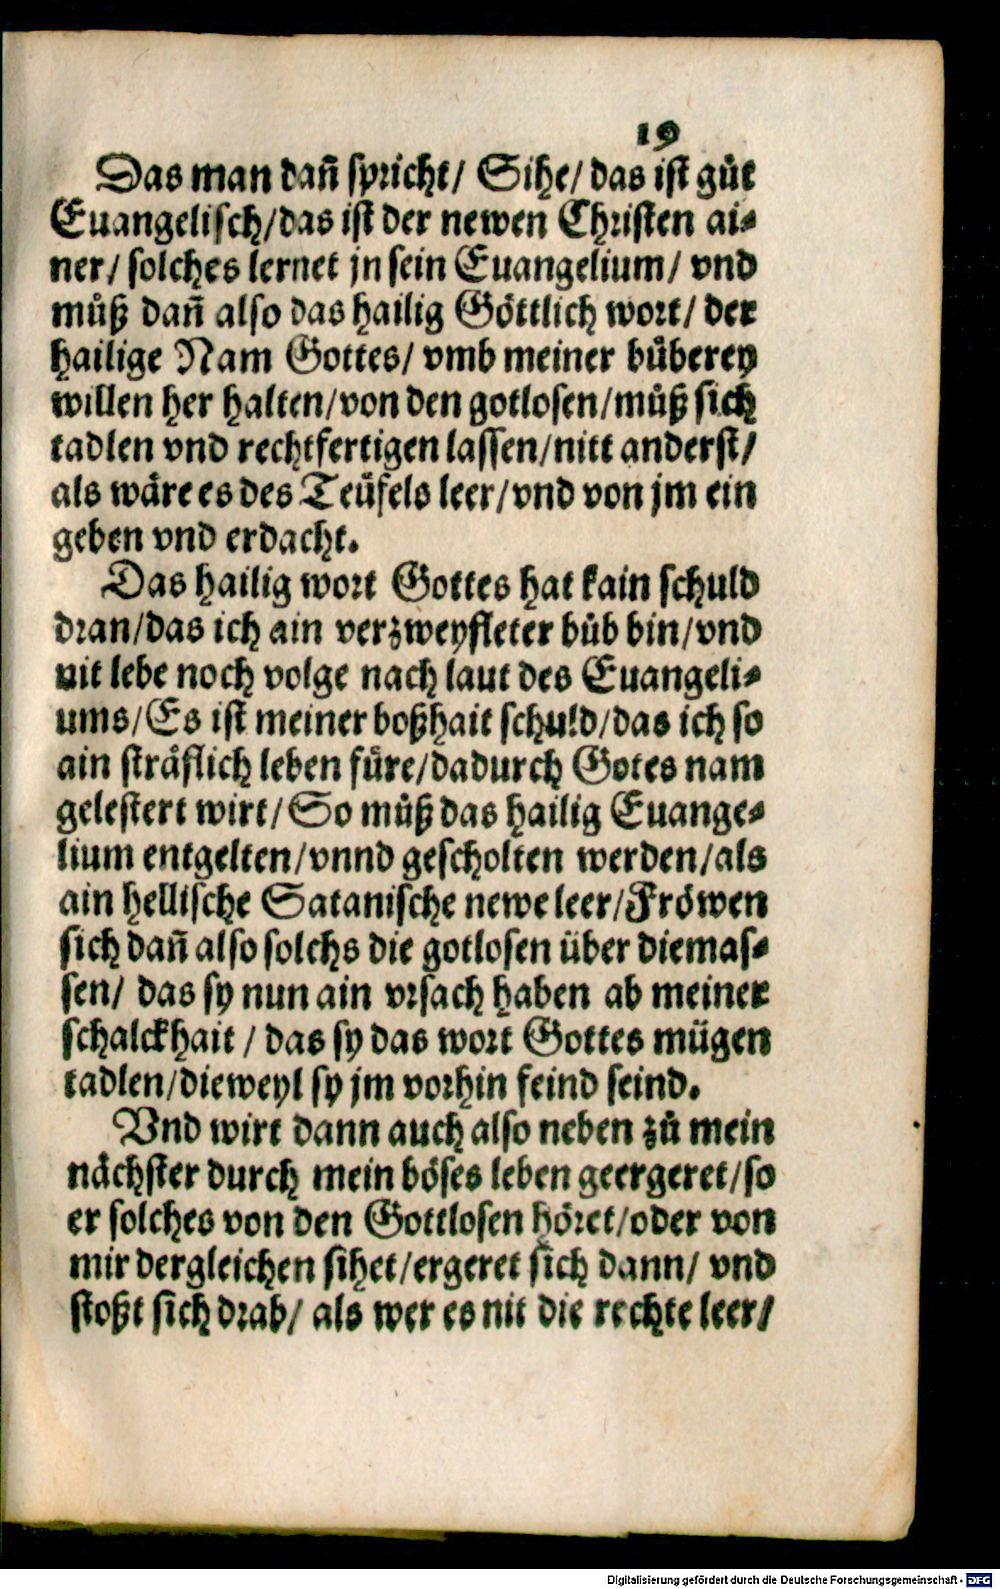 19
Das man dañ spricht/ Sihe/ das ist gůt
Euangelisch/das ist der newen Christen ai⸗
ner/ solches lernet jn sein Euangelium/ vnd
můß dañ also das hailig Göttlich wort/ der
hailige Nam Gottes/ vmb meiner bůberey
willen her halten/von den gotlosen/můß sich
tadlen vnd rechtfertigen lassen/nitt anderst/
als wäre es des Teüfels leer/vnd von jm ein
geben vnd erdacht.
Das hailig wort Gottes hat kain schuld
dran/das ich ain verzweyfleter bůb bin/vnd
nit lebe noch volge nach laut des Euangeli⸗
ums/Es ist meiner boßhait schuld/das ich so
ain sträflich leben füre/dadurch Gotes nam
gelestert wirt/ So můß das hailig Euange⸗
lium entgelten/vnnd gescholten werden/als
ain hellische Satanische newe leer/Fröwen
sich dañ also solchs die gotlosen über diemas⸗
sen/ das sy nun ain vrsach haben ab meiner
schalckhait / das sy das wort Gottes mügen
tadlen/dieweyl sy jm vorhin feind seind.
Vnd wirt dann auch also neben zů mein
nächster durch mein böses leben geergeret/so
er solches von den Gottlosen höret/oder von
mir dergleichen sihet/ergeret sich dann/ vnd
stoßt sich drab/ als wer es nit die rechte leer/
Digitalisierung gefördert durch die Deutsche Forschungsgemeinschaft - DFG